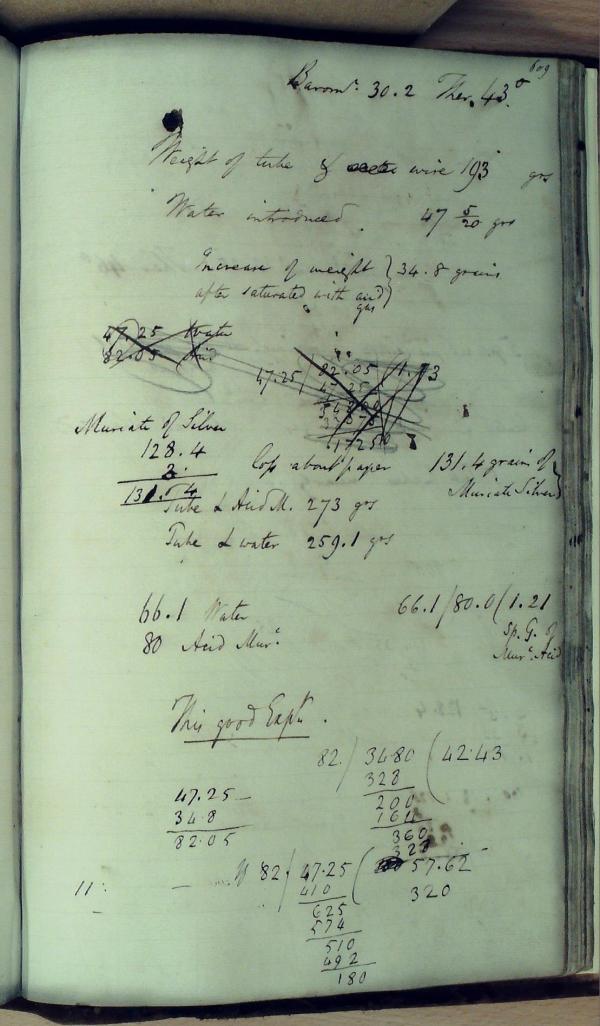 609
Baromr. 30.2 Ther. 43°
Weight of tube & wire 193 grs
Water introduced 47 5/20 grs
Increase of weight } 34.8 grains
after saturated with acid }
gas
47.25 Water
82.05 Acid
47.25 / 82.05 ( 1.73
47 25
Muriate of Silver
128.4
3.
131.4
Cop about paper 131.4 grain of }
Muriate Silver }
Tube & Acid M. 273 grs
Tube & water 259.1 grs
66.1 Water 66.1 / 80.0 ( 1.21
80 Acid Murc. Sp. G. of
Murc. Acid
This good Expt.
82 / 3480 ( 42.43
328
200
164
360
328
320
47.25
34.8
82.05
11
82 / 47.25 ( 57.62
410
625
574
510
492
180